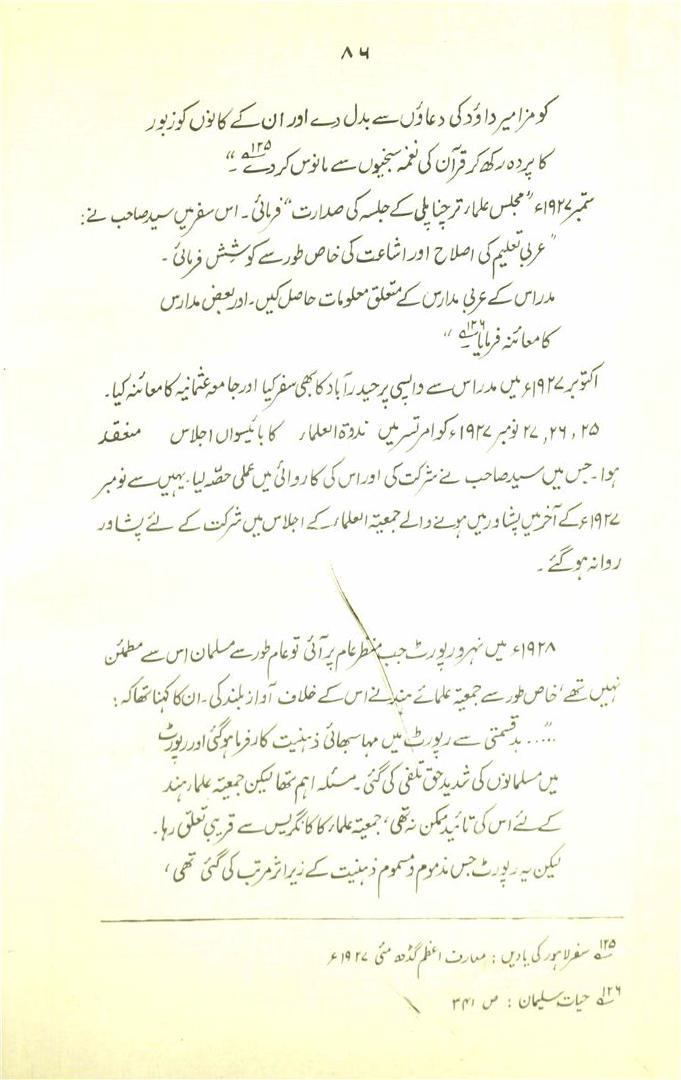 ۸۶
کو مزامیر داؤد کی دعاؤں سے بدل دے اور ان کے کانوں کو زبور
کا پردہ رکھ کر قرآن کی نغمہ سنجیوں سے مانوس کر دے ۱۲۵؎۔“
ستمبر ۱۹۲۷ء ”مجلس علماء ترچناپلی کے جلسہ کی صدارت“ فرمائی۔ اس سفر میں سید صاحب نے:
”عربی تعلیم کی اصلاح اور اشاعت کی خاص طور سے کوشش فرمائی۔
مدراس کے عربی مدارس کے متعلق معلومات حاصل کیں۔ اور بعض مدارس
کا معائنہ فرمایا ۱۲۶؎۔“
اکتوبر ۱۹۲۷ء میں مدراس سے واپسی پر حیدرآباد کا بھی سفر کیا اور جامعہ عثمانیہ کا معائنہ کیا۔
۲۵، ۲۶، ۲۷ نومبر ۱۹۲۷ء کو امرتسر میں ندوۃ العلماء کا بائیسواں اجلاس منعقد
ہوا۔ جس میں سید صاحب نے شرکت کی اور اس کی کاروائی میں عملی حصّہ لیا۔ یہیں سے نومبر
۱۹۲۷ء کے آخر میں پشاور میں ہونے والے جمعیۃ العلماء کے اجلاس میں شرکت کے لئے پشاور
روانہ ہو گئے۔
۱۹۲۸ء میں نہرو رپورٹ جب منظر عام پر آئی تو عام طور سے مسلمان اس سے مطمئن
نہیں تھے، خاص طور سے جمعیۃ علمائے ہند نے اس کے خلاف آواز بلند کی۔ ان کا کہنا تھا کہ:
”.... بدقسمتی سے رپورٹ میں مہاسبھائی ذہنیت کارفرما ہو گئی اور رپورٹ
میں مسلمانوں کی شدید حق تلفی کی گئی۔ مسئلہ اہم تھا لیکن جمعیۃ علماء ہند
کے لئے اس کی تائید ممکن نہ تھی، جمعیۃ علماء کا کانگریس سے قریبی تعلق رہا۔
لیکن یہ رپورٹ جس مذموم و مسموم ذہنیت کے زیر اثر مرتب کی گئی تھی،
۱۲۵؎ سفر لاہور کی یادیں: معارف اعظم گڈھ مئی ۱۹۲۷ء
۱۲۶؎ حیات سلیمان: ص ۳۴۱